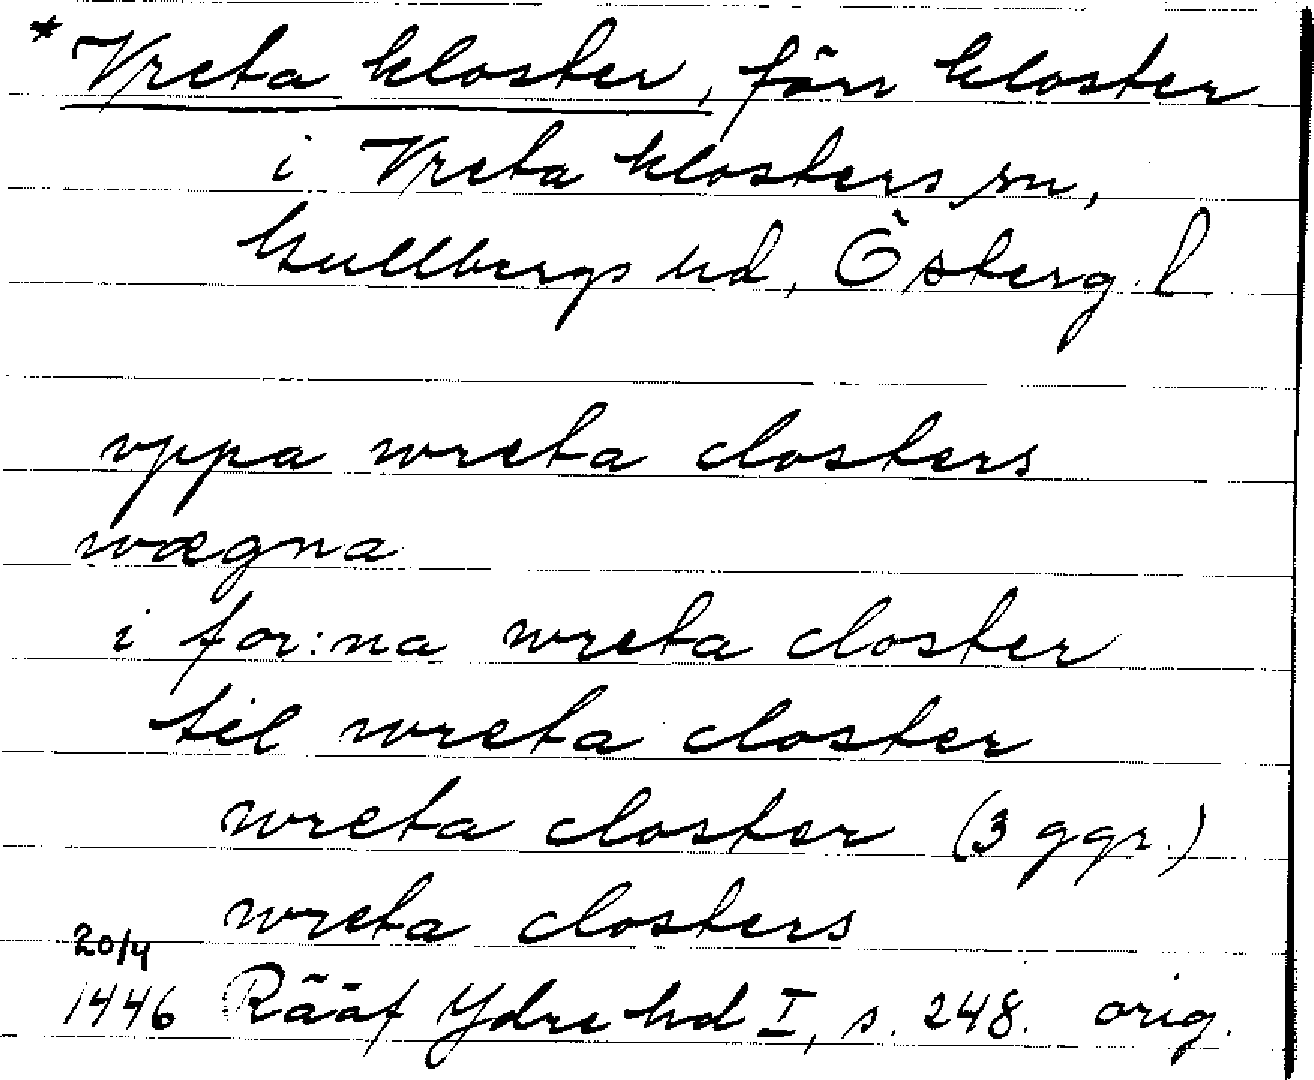 * Vreta kloster, förr kloster
i Vreta klosters sn,
Gullbergs hd, Österg. l
vppa wreta closters
wægna
i for:na wreta closter
til wreta closter
wreta closter (3 ggr.)
wreta closters
20/4
1446 Rääf Ydre hd I, s. 248. orig.